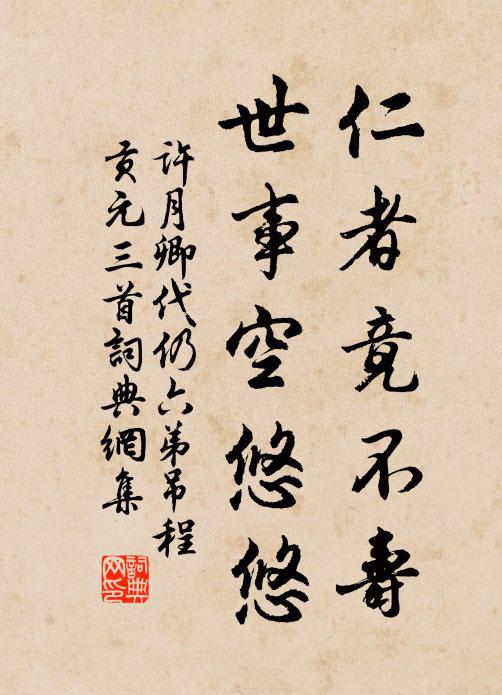 仁者竟不壽
世事空悠悠
許月卿代仍六弟吊程
貢元三首詞典網集
詞典网印